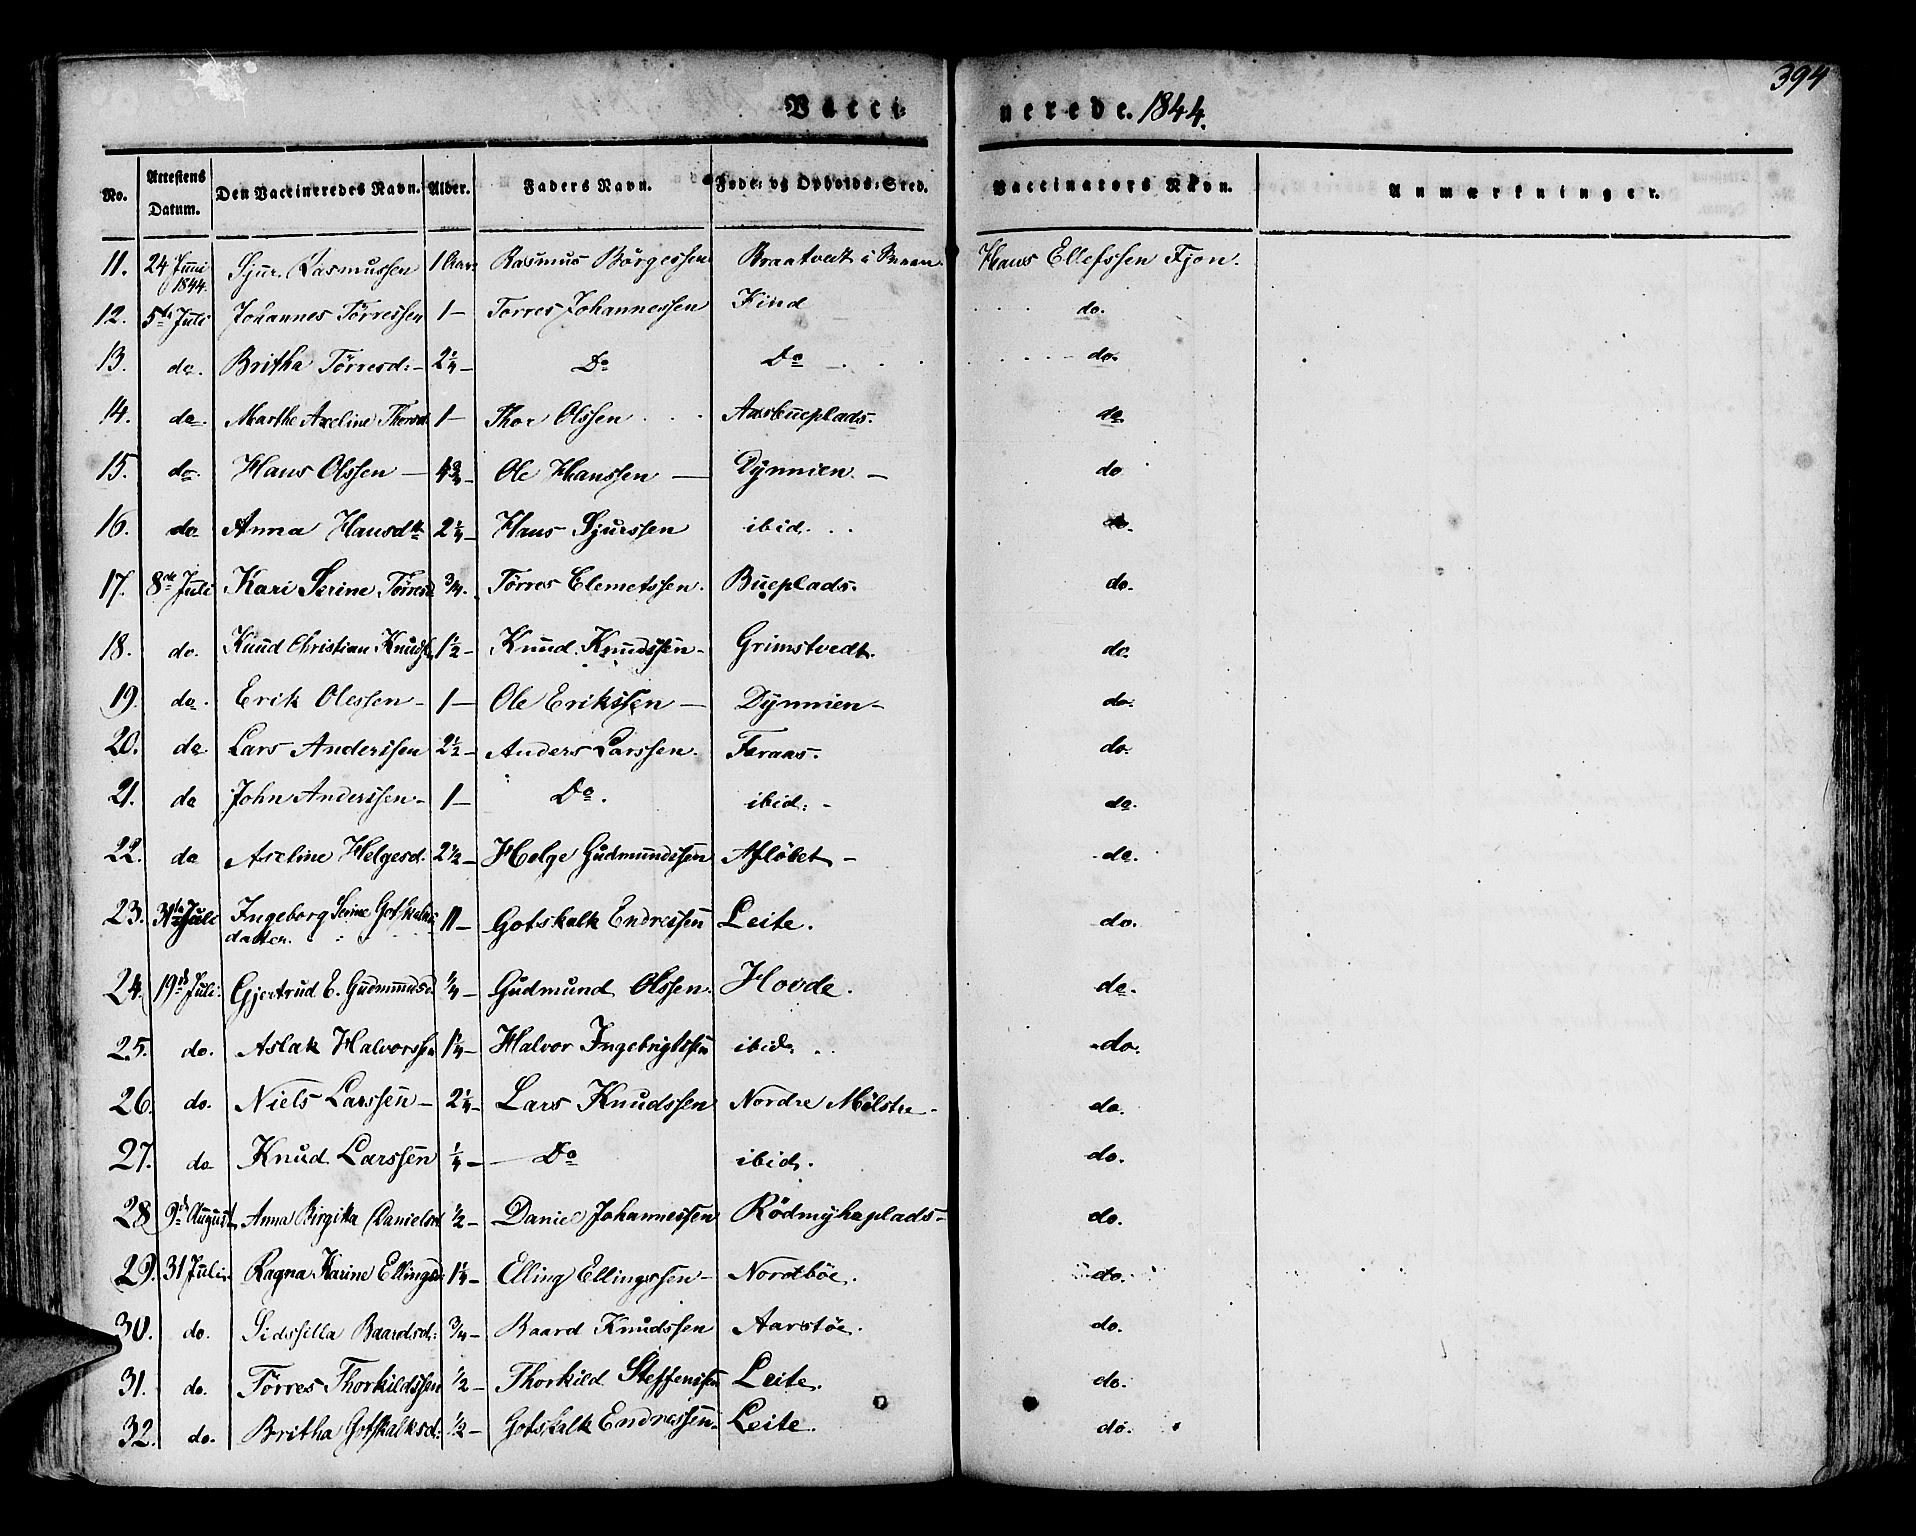 394
Vacci- nerede. 1844.
No. Attestens Datum. Den Vaccineredes Navn. Alder. Faders Navn. Føde- og Opholds-Sted. Vaccinators Navn. Anmærkninger.
11. 24 Juni 1844. Sjur. Rasmussen 1 Aar. Rasmus Börgessen Braatvedt i Hans Ellefssen Fjon.
12. 5te Juli Johannes Törressen 1 – Torres Johannessen Kind do.
13. do. Britha Törresd: – 2 1/4 – Do Do do.
14. do. Marthe Axeline Thorsd 1 – Thor Olssen Aarsbueplads. do.
15. do. Hans Olssen – 4 3/4 – Ole Hanssen – Dÿnnien. – do
16. do Anna Hansdtr 2 1/4 – Hans Sjurssen ibid. do.
17. 8de Juli Kari Serine Törresd 3/4. Törres Clemetssen. Bueplads. do.
18. do. Knud Christian Knuds. 1 1/2 – Knud Knudssen – Grimstvedt. do.
19. do. Erik Olessen – 1 – Ole Erikssen – Dÿnnien – do.
20. do Lars Anderssen 2 1/2 – Anders Larssen. Faraas. do.
21. do John Anderssen – 1 – Do. ibid: – do.
22. do Axeline Helgesd. 2 1/2 – Helge Gudmundssen Aflöbet – do.
23. Juli Ingeborg Serine Gotskalks 11 – Gotskalk Endressen Leite. do.
datter.
24. 19de Juli. Gjertrud E. Gudmundsd 1/4 – Gudmund Olssen. Hovde. do.
25. do. Aslak Halvorssen 1 1/4 – Halvor Ingebrigtssen ibid. do.
26. do. Niels Larssen – 2 1/4 – Lars Knudssen Nordre Mölstre – do.
27. do Knud Larssen 1/4 – Do ibid. do.
28 9de August Anna Birgitta Danielsd 1/2 – Daniel Johannessen Rödmÿheplads – do.
29. 31 Juli. Ragna Karine Ellingsd. 1 1/4 – Elling Ellingssen – Nordtböe. do.
30. do. Sidssilla Baardsd: 3/4 – Baard Knudssen Aarstöe. do.
31. do. Törres Thorkildssen 1/2 – Thorkild Steffenssen Leite. do.
32. do. Britha Gotskalksd: 1/2 – Gotskalk Endressen – Leite. do.